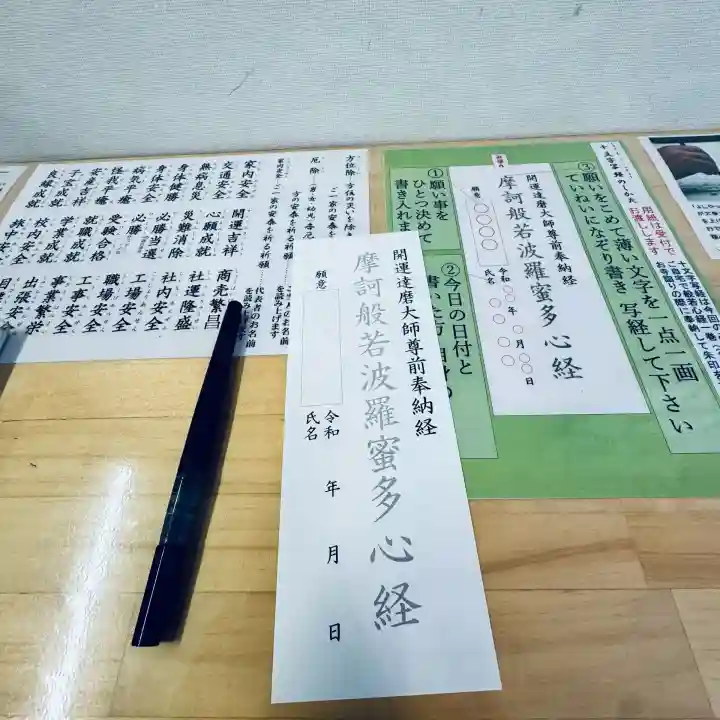 方位除
厄除
家内安全
交通安全
無病息災
身体健勝
身体安全
病気平癒
怪我平癒
安産祈願
子宝成就
良縁成就
開運吉祥
心願成就
災難消除
必勝当選
必勝
受験合格
就職成就
学業成就
旅中安全
商売繁昌
社運隆盛
社内安全
工場安全
職場安全
工事安全
事業繁栄
出張安全
代表者のお名前
を読み上げます
開運達磨大師尊前奉納経
摩訶般若波羅蜜多心経
願意
令和 年 月 日
氏名
十文字写経のつくり方
③願いをこめて薄い文字を一点一画
ていねいになぞり書き 写経して下さい
開運達磨大師尊前奉納経
摩訶般若波羅蜜多心経
願意
〇〇〇〇
令和〇年〇月〇〇日
氏名
①願い事を
ひとつ決めて
書き入れま
②今日の日付と
用紙は受付で
お渡しします